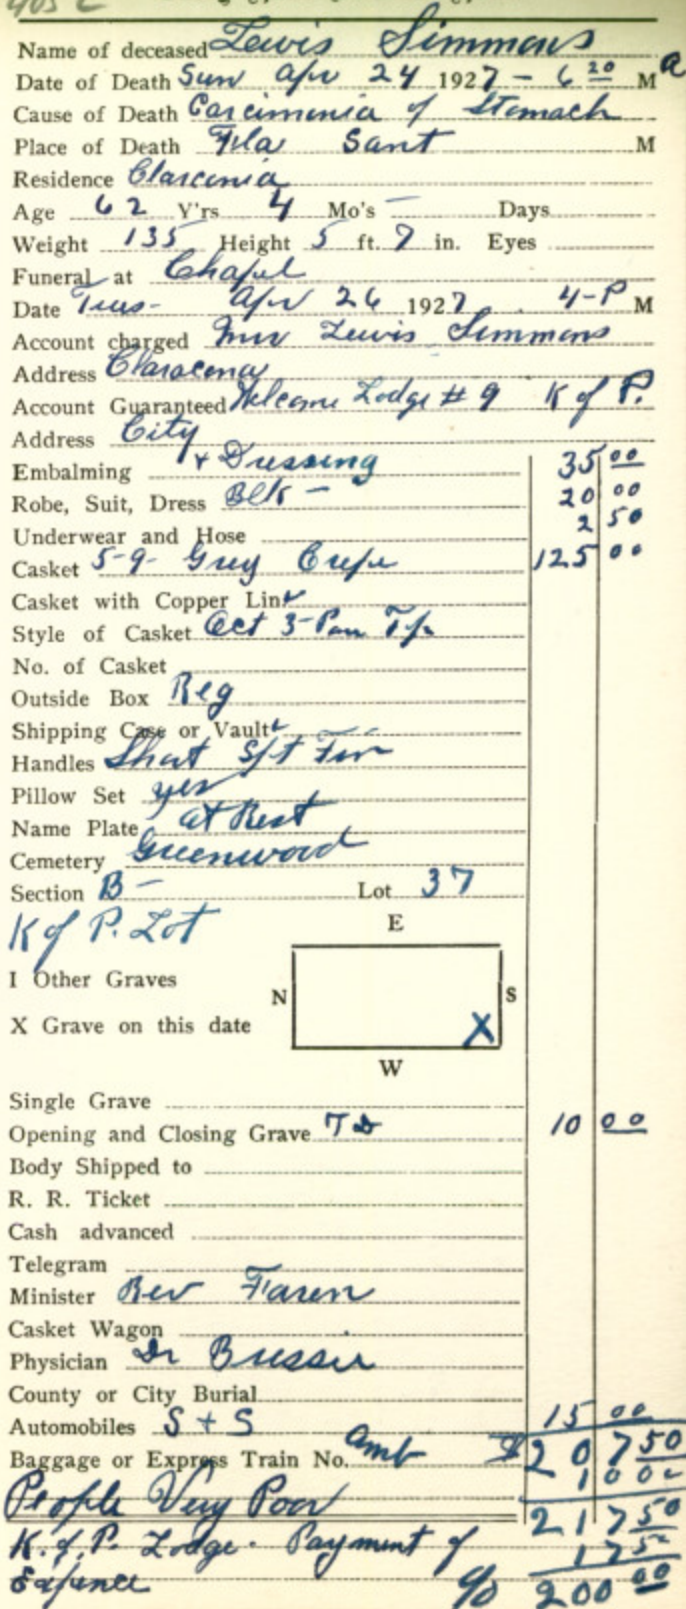 405 C
Name of deceased Lewis Simmons
Date of Death Sun Apr 24 1927 - 6 20 M a
Cause of Death Carcimonia of Stomach
Place of Death Fla Sant M
Residence Clarconia
Age 62 Y'rs 4 Mo's - Days
Weight 135 Height 5 ft. 7 in. Eyes
Funeral at Chapel
Date Tues- Apr 26 1927 4-P M
Account charged Mrs Lewis Simmons
Address Claracona
Account Guaranteed Welcome Lodge # 9 K of P.
Address City
Embalming + Dressing 35 00
Robe, Suit, Dress Blk - 20 00
Underwear and Hose 2 50
Casket 5-9- Grey Crepe 125 00
Casket with Copper Lin
Style of Casket Oct 3-Pan Top
No. of Casket
Outside Box Reg
Shipping Case or Vault
Handles Short Fin
Pillow Set yes
Name Plate at Rest
Cemetery Greenwood
Section B - Lot 37
K of P. Lot
E
I Other Graves
N S
X Grave on this date X
W
Single Grave
Opening and Closing Grave 10 00
Body Shipped to
R. R. Ticket
Cash advanced
Telegram
Minister Rev Faren
Casket Wagon
Physician Dr
County or City Burial
Automobiles S + S 15 00
Baggage or Express Train No. Amb $ 207 50
10 00
People Very Poor 217 50
K. of P. Lodge. Payment of 17 50
Expence % 200 00